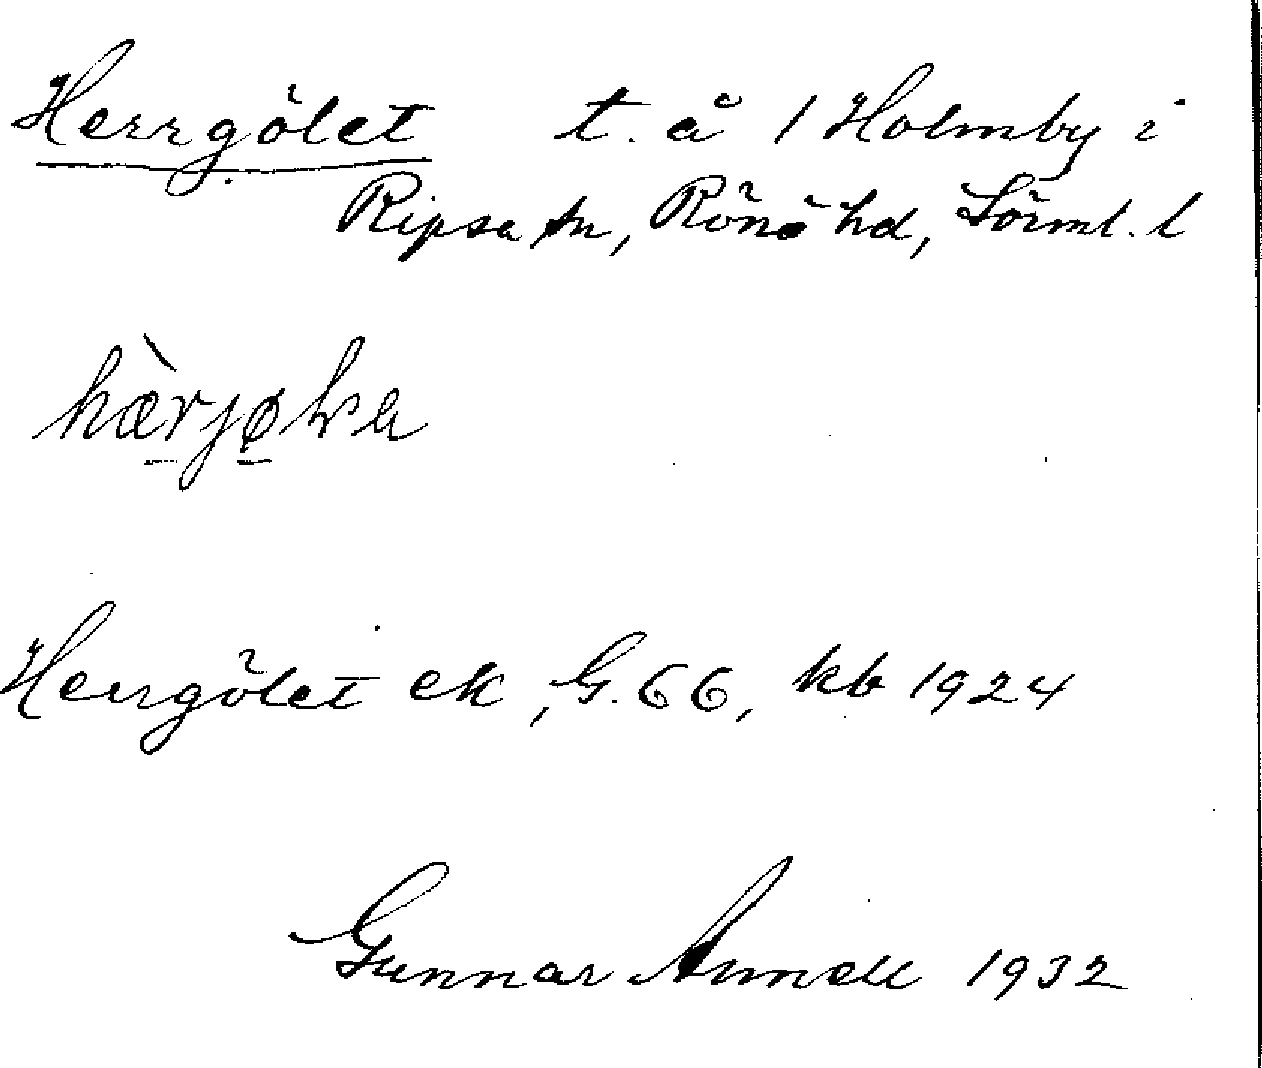 Herrgölet t. å 1 Holmby i
Ripsa sn, Rönö hd, Sörml. l
Herrgölet ek, G. 66, kb 1924
Gunnar 1932